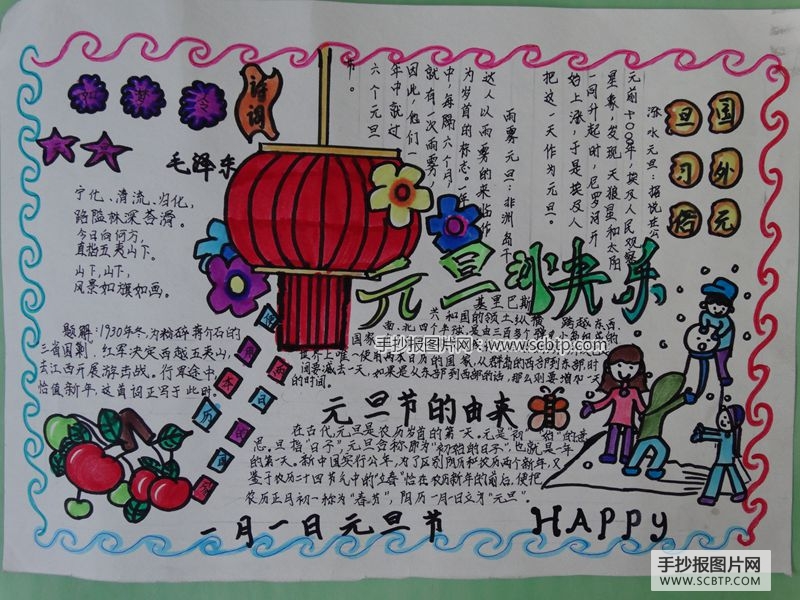 如梦令
元旦
诗词
毛泽东
宁化、清流、归化,
路隘林深苔滑。
今日向何方,
直指五夷山下。
山下,山下,
风景如旗如画。
题解:1930年冬,为粉碎蒋介石的
三省围剿,红军决定西越五夷山,
去江西开展游击战。行军途中,
恰值新年,这首词正写于此时。
国外元
旦习俗
涨水元旦:据说在公
元前1000年,埃及人民观察
星象,发现天狼星和太阳
一同升起时,尼罗河开
始上涨,于是埃及人
把这一天作为元旦。
雨雾元旦:非洲乌干
达人以雨雾的来临作
为岁首的标志。一年
中,每隔六个月,
就有一次雨雾,
因此,他们一
年中就过
六个元旦
节。
元旦快乐
基里巴斯
共和国的领土纵横 跨越东西、
南、北四个半球,是由三百多个
国家
世界上唯一使用两本日历的国家,从群岛的西部到东部,时
间要减去一天,如果是从东部到西部的话,那么则要增加一天
的时间。
元旦节的由来
在古代元旦是农历岁首的第一天。元是"初""始"的意
思。旦指"日子",元旦合称即为"初始的日子",也就是一年
的第一天。新中国实行公年,为了区别阴历和农历两个新年,又
鉴于农历二十四节气中的"立春"恰在农历新年的前后,便把
农历正月初一称为"春节",阳历一月一日立为"元旦"。
一月一日元旦节
HAPPY
手抄报图片网 www.scbtp.com
手抄报图片网
WWW.SCBTP.COM